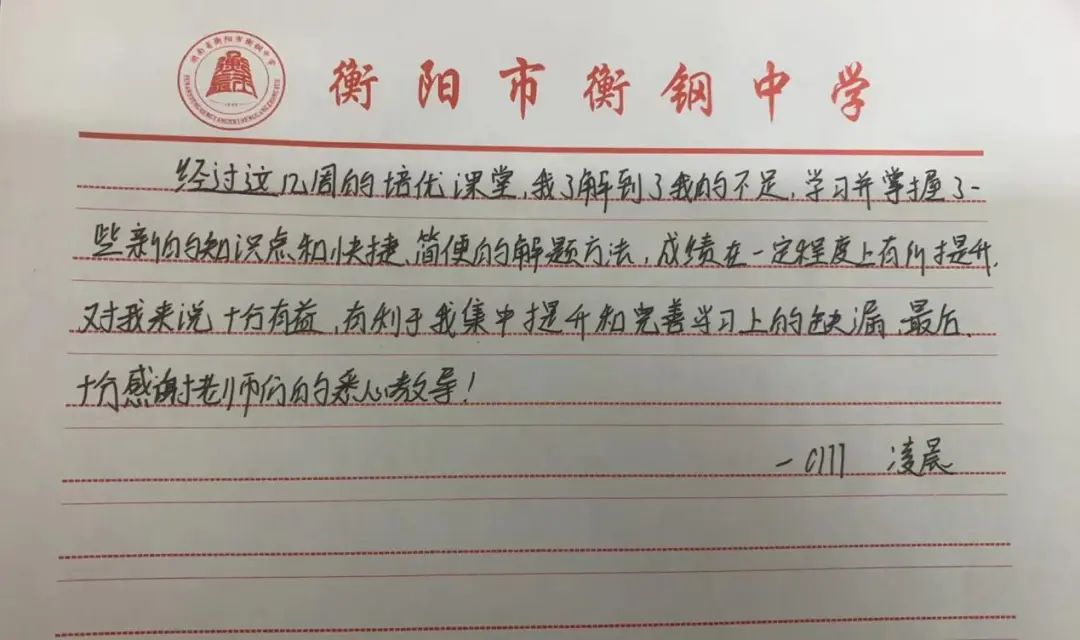 湖南省衡阳市衡钢中学
衡阳市衡钢中学
经过这几周的培优课堂,我了解到了我的不足,学习并掌握了一
些新的知识点和快捷、简便的解题方法,成绩在一定程度上有所提升,
对我来说十分有益,有利于我集中提升和完善学习上的缺漏,最后,
十分感谢老师们的悉心教导!
凌晨